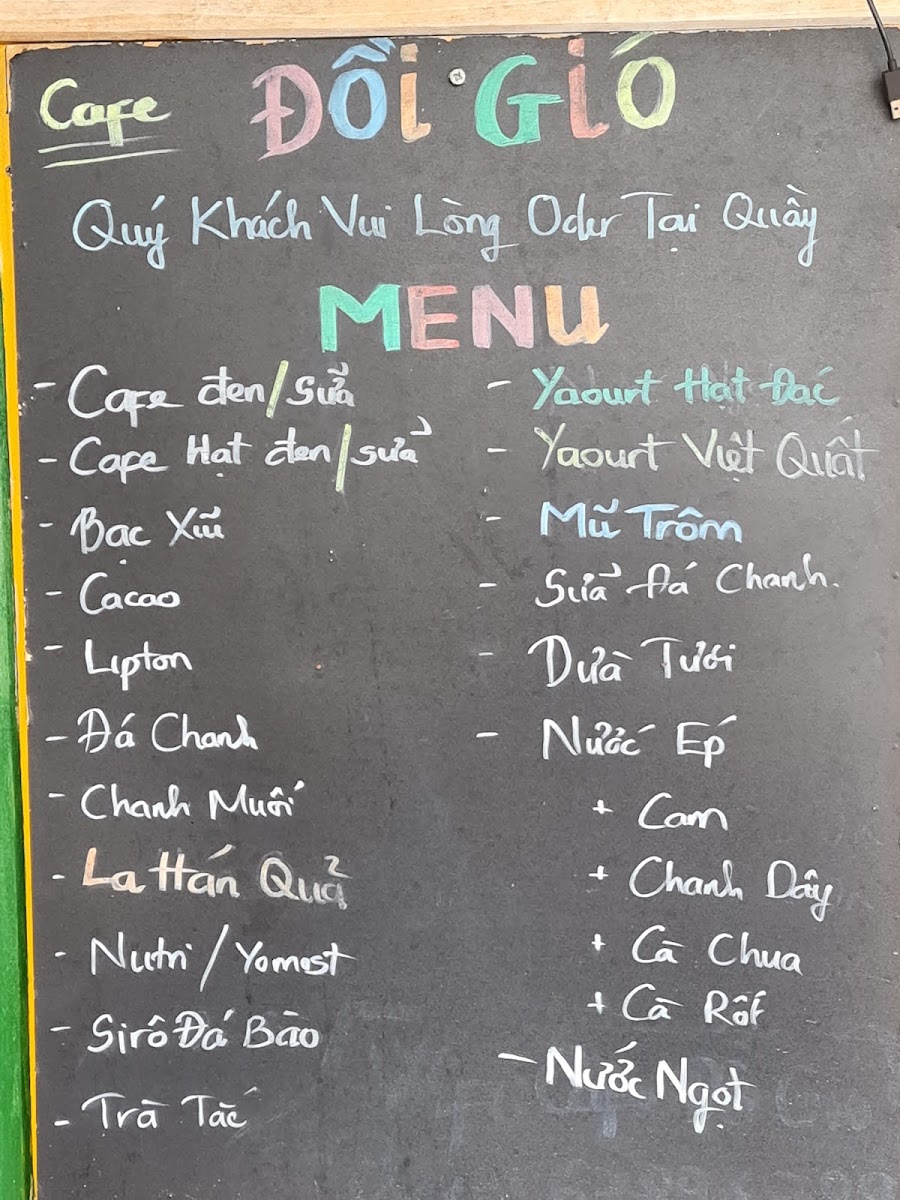 Cafe ĐỒI GIÓ
Quý Khách Vui Lòng Oder Tại Quầy
MENU
- Cafe đen/sữa
- Cafe Hạt đen/sửa
- Bạc Xỉu
- Cacao
- Lipton
- Đá Chanh
- Chanh Muối
- La Hán Quả
- Nutri/Yomost
- Sirô Đá Bào
- Trà Tắc
- Yaourt Hạt Đác
- Yaourt Việt Quất
- Mũ Trôm
- Sửa Đá Chanh.
- Dừa Tươi
- Nước Ép
+ Cam
+ Chanh Dây
+ Cà Chua
+ Cà Rốt
- Nước Ngọt